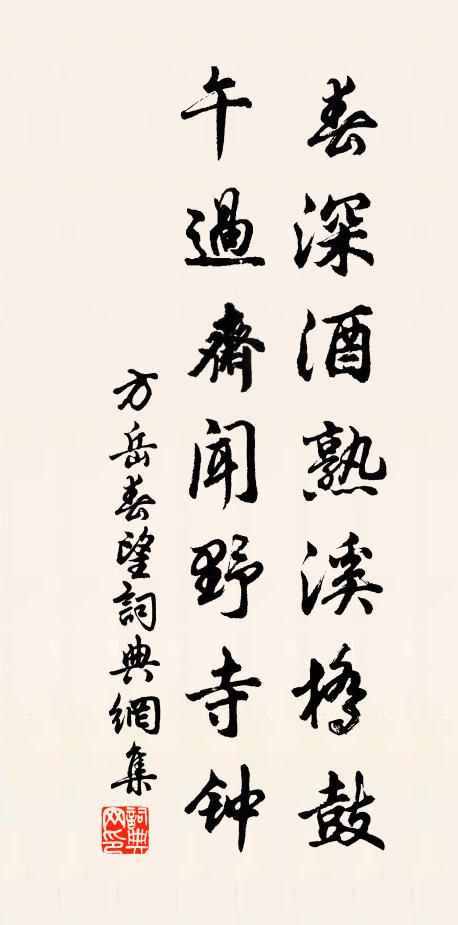 春深酒熟溪橋鼓
午過齋聞野寺钟
方岳春望詞典網集
詞典網印